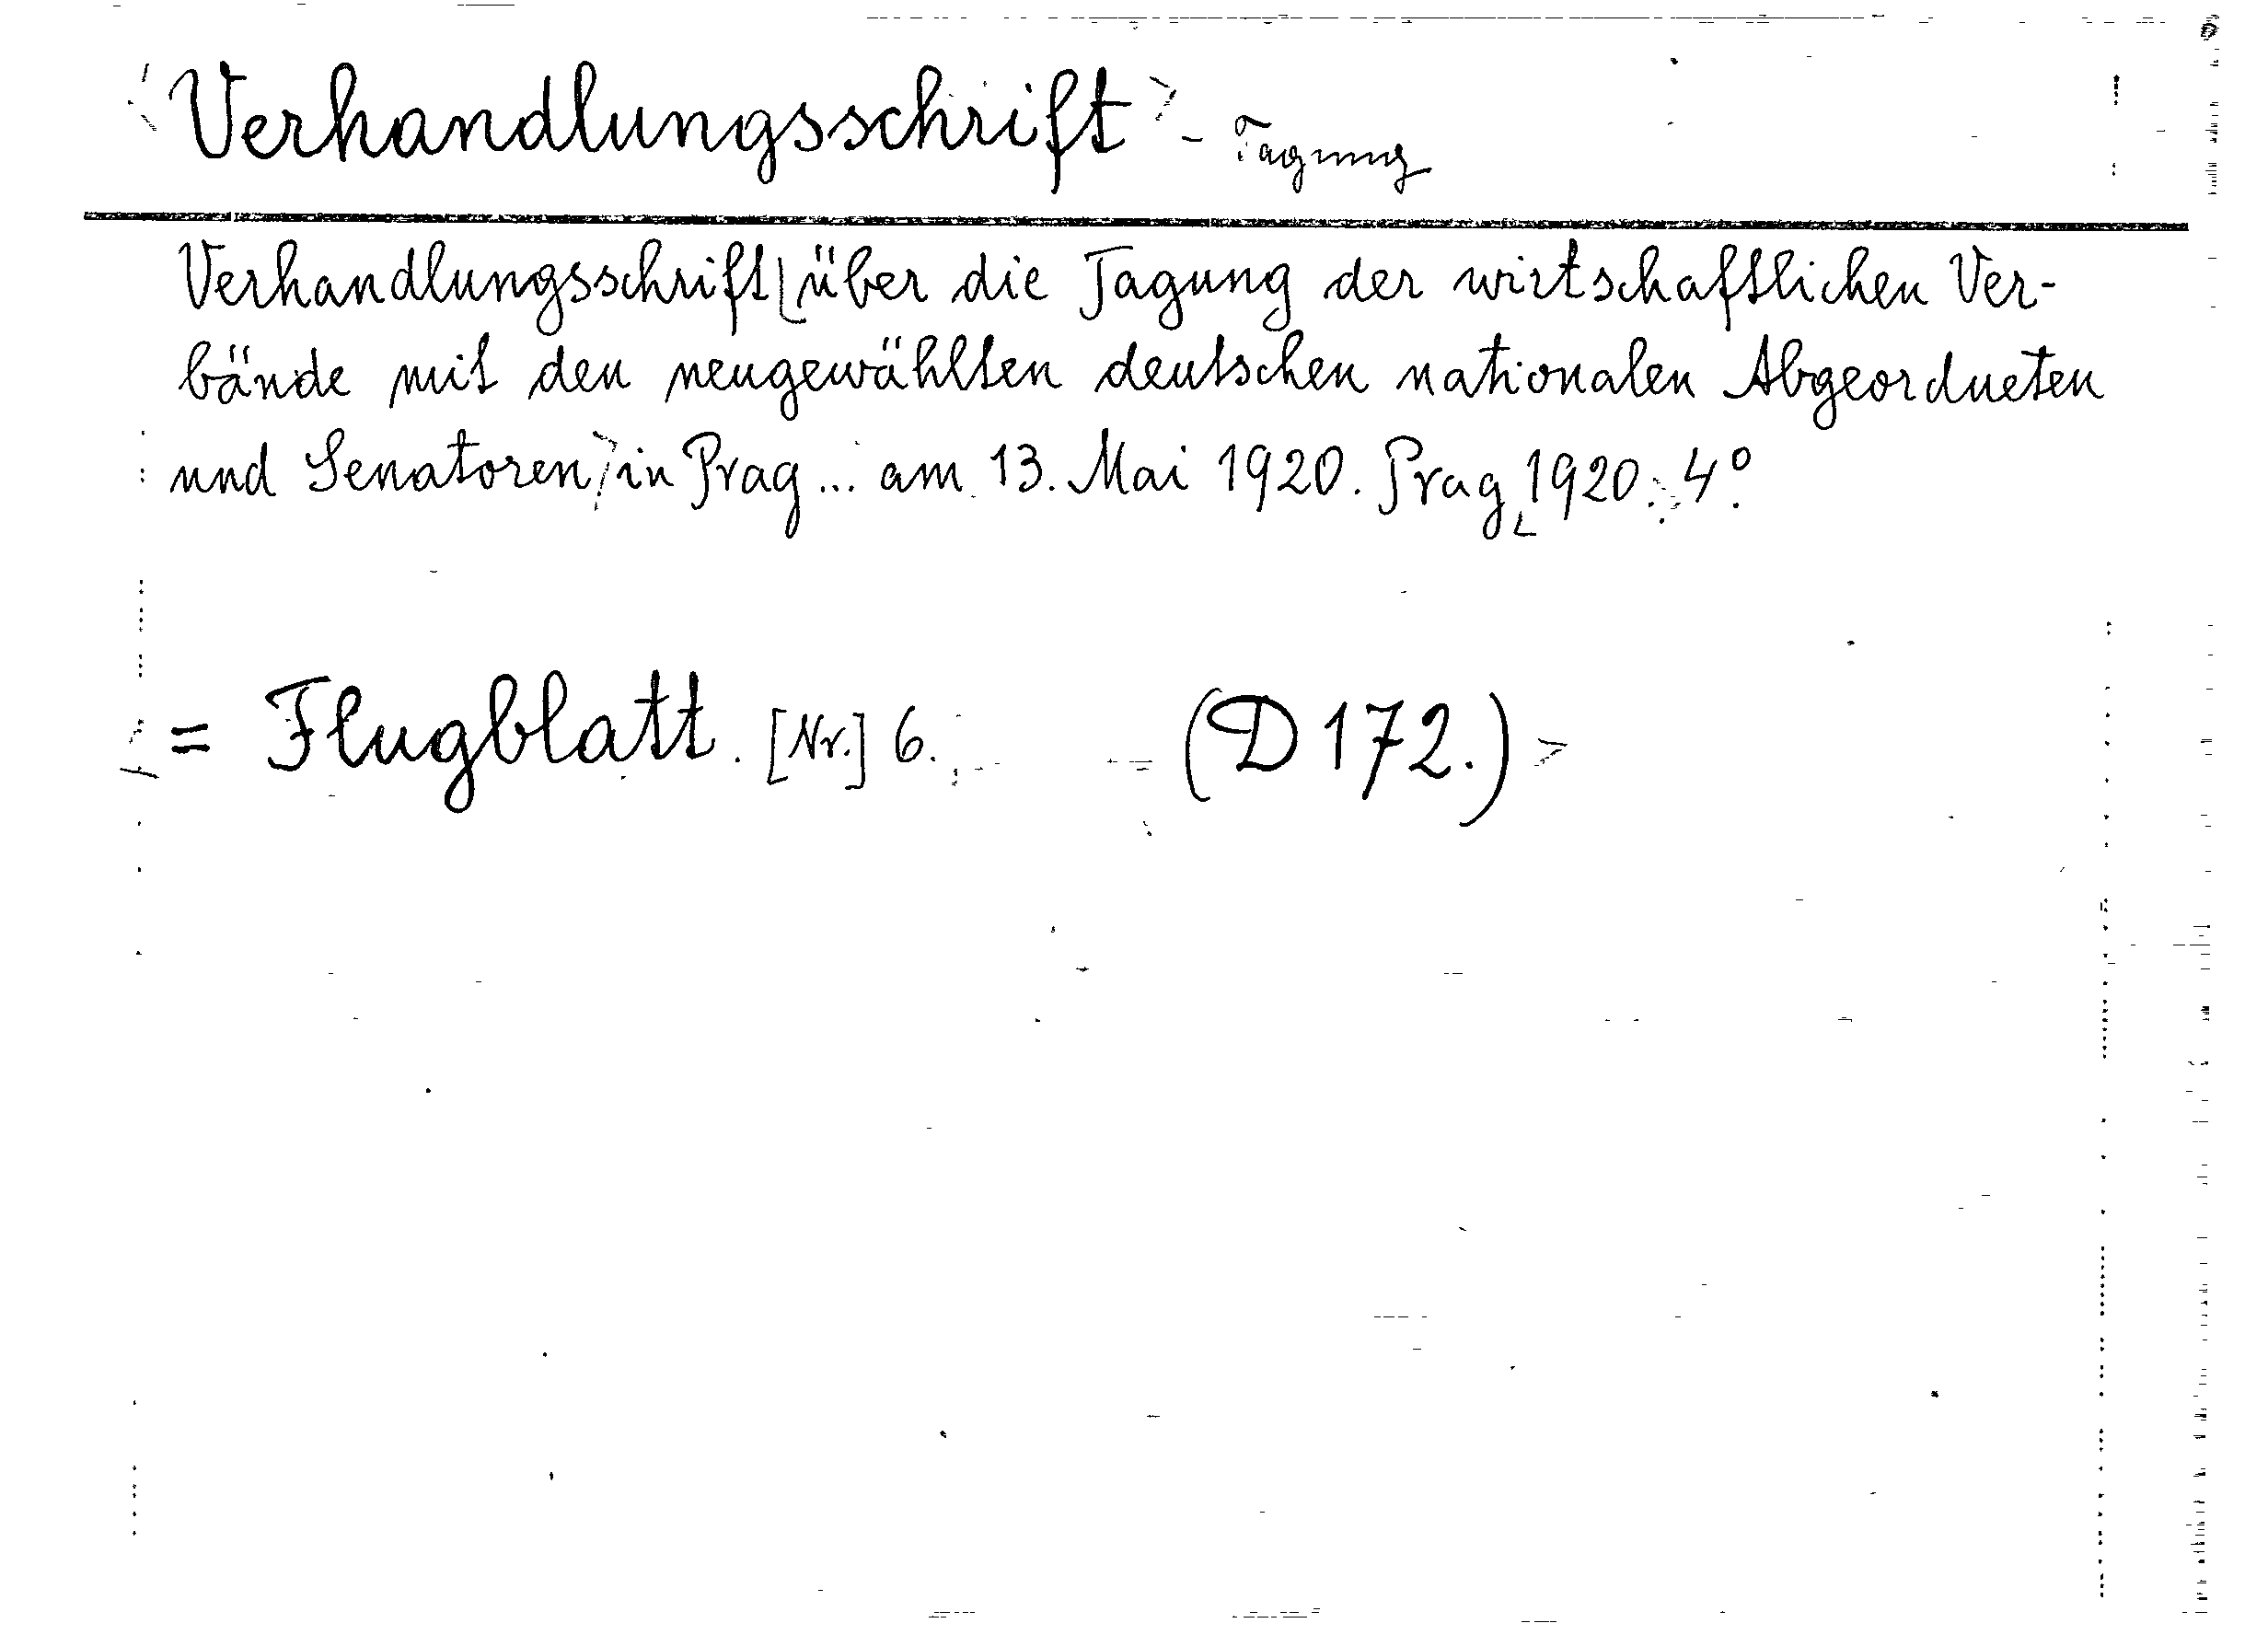 <Verhandlungsschrift> - Tagung
Verhandlungsschrift⌊über die Tagung der wirtschaftlichen Ver-
bände mit den neugewählten deutschen nationalen Abgeordneten
und Senatoren> in Prag ... am 13. Mai 1920. Prag 1920. 4°.
= Flugblatt. [Nr.] 6. (D 172.) >